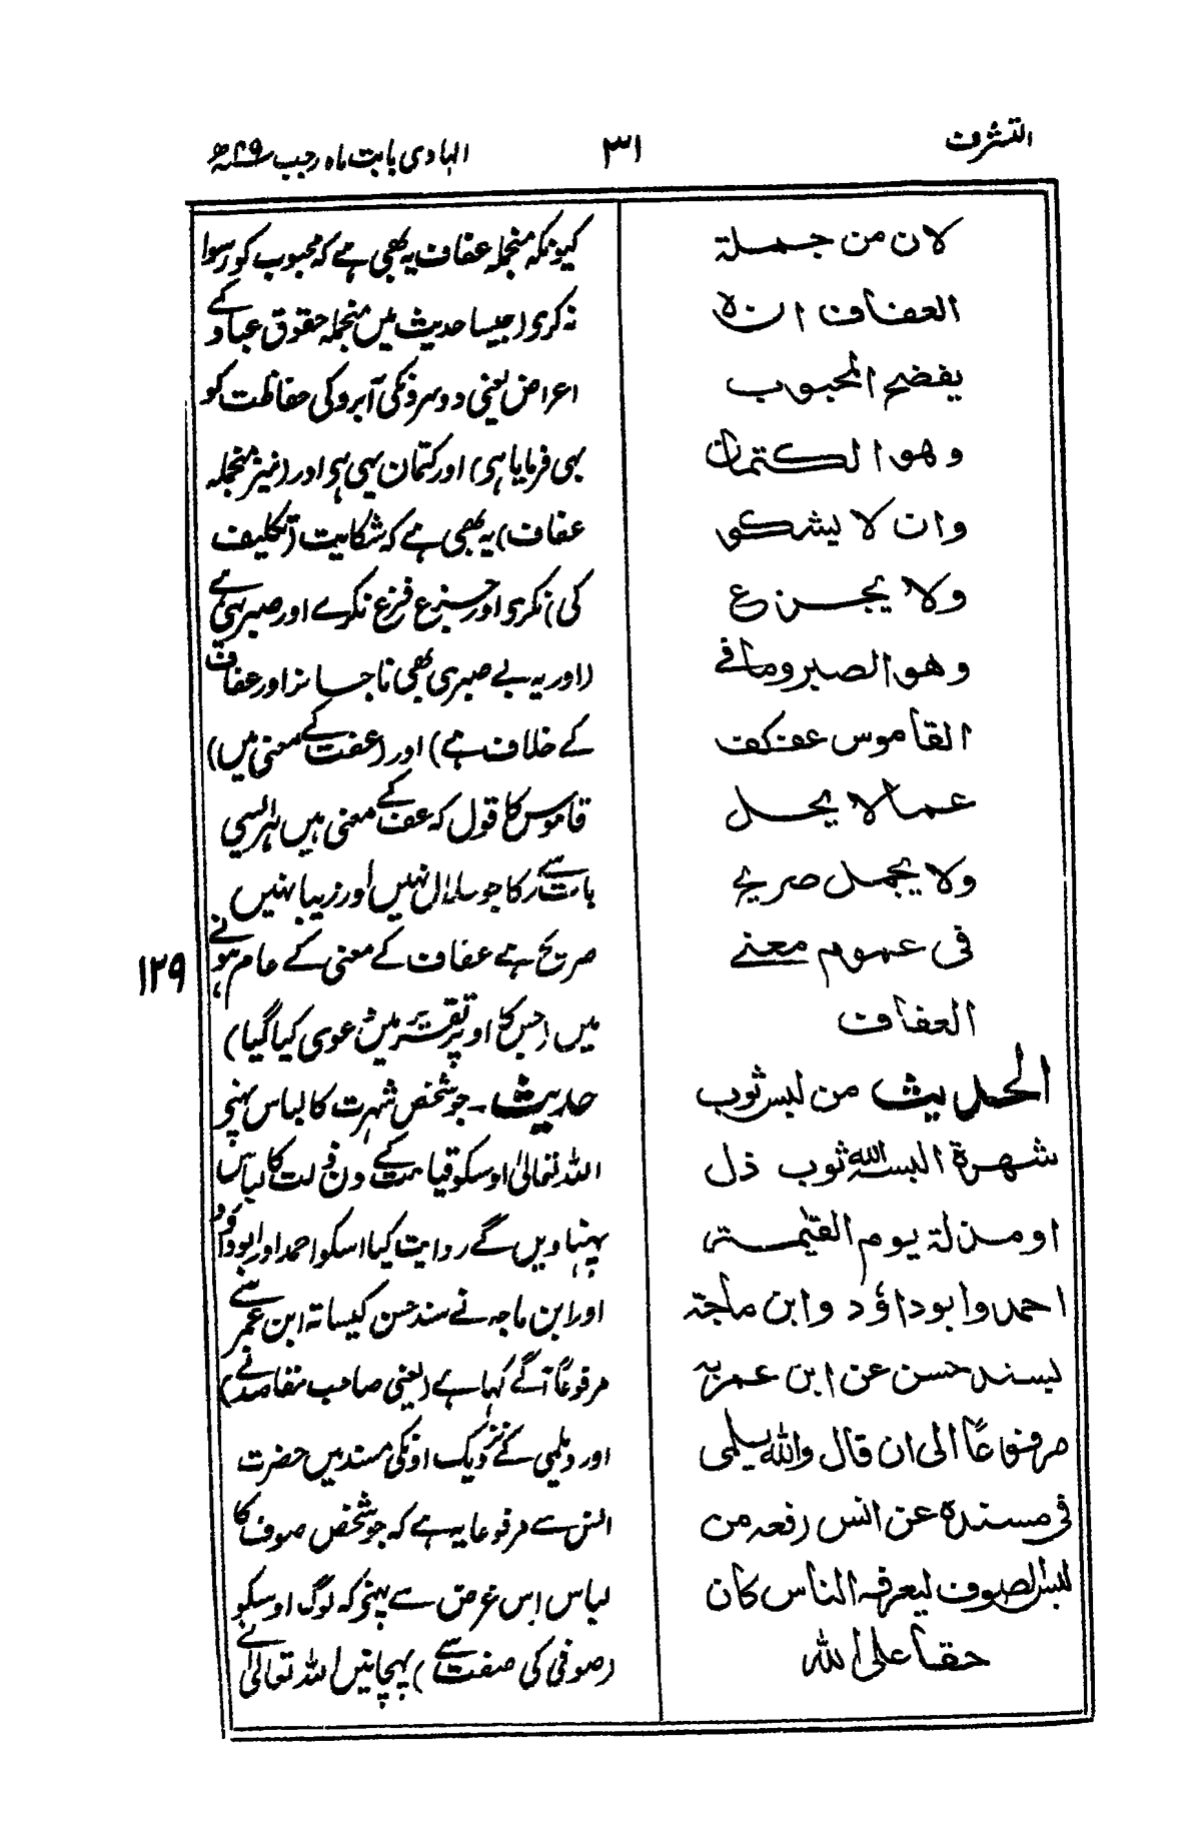 التشرف
۳۱
الہادی بابت ماہ رجب ۴۹ھ
لان من جملة
العفاف ان لا
يفضح المحبوب
وهو الكتمان
وان لا يشكو
ولا يجزع
وهو الصبر وما في
القاموس عف كف
عما لا يحل
ولا يجمل صريح
فى عموم معنے
العفاف
الحديث من لبس ثوب
شهرة البسه الله ثوب ذل
او مذلة يوم القيمة
احمد وابوداؤد وابن ماجة
بسند حسن عن ابن عمر به
مرفوعًا الى ان قال والديلمى
فى مسنده عن انس رفعه من
لبس الصوف ليعرفه الناس كان
حقا على الله
کیونکہ منجملہ عفاف یہ بھی ہے کہ محبوب کو رسوا
نہ کرے (جیسا حدیث میں منجملہ حقوق عباد کے
اعراض یعنی دوسرونکی آبرو کی حفاظت کو
بہی فرمایا ہی) اور کتمان یہی ہو اور (نیز منجملہ
عفاف) یہ بھی ہے کہ شکایت (تکلیف
کی) نکرے اور جزع فزع نکرے اور صبر یہی ہے
(اور یہ بے صبری بھی ناجائز اور عفاف
کے خلاف ہے) اور (عفت کے معنی میں)
قاموس کا قول کہ عف کے معنی ہیں ہر ایسی
بات سے رکا جو حلال نہیں اور زیبا نہیں
صریح ہے عفاف کے معنی کے عام ہونے
میں (جس کا اوپر تقریر میں دعوی کیا گیا)
۱۲۹
حدیث۔ جو شخص شہرت کا لباس پہنے
اللہ تعالیٰ اوسکو قیامت کے دن ذلت کا لباس
پہناویں گے روایت کیا اسکو احمد اور ابوداؤد
اور ابن ماجہ نے سند حسن کیساتھ ابن عمر سے
مرفوعًا آگے کہا ہے (یعنی صاحب مقاصد نے)
اور دیلمی کے نزدیک اونکی مسند میں حضرت
انس سے مرفوعا یہ ہے کہ جو شخص صوف کا
لباس اس غرض سے پہنے کہ لوگ اوسکو
(صوفی کی صفت سے) پہچانیں اللہ تعالیٰ نے